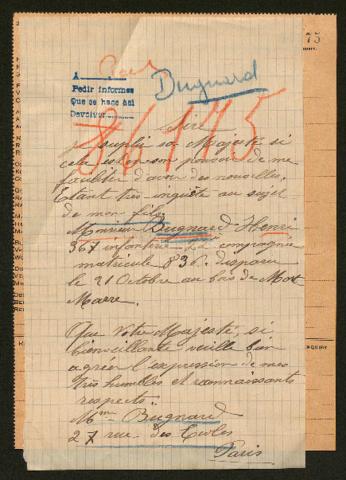 A
Pedir informes
Que se hace así
Devolver
Bugnard
86175
75
Sire
Je supplie sa Majesté si
cela est en son pouvoir de me
faciliter d'avoir des nouvelles.
Etant très inquiète au sujet
de mon fils
Monsieur Bugnard Henri
367 infanterie compagnie
matricule disparu
le 21 Octobre au bois de Mort
Mare.
Que Votre Majesté, si
bienveillante veuille bien
agréer l'expression de mes
très humbles et reconnaissants
respects.
Mme Bugnard
27 rue des Ecoles
Paris